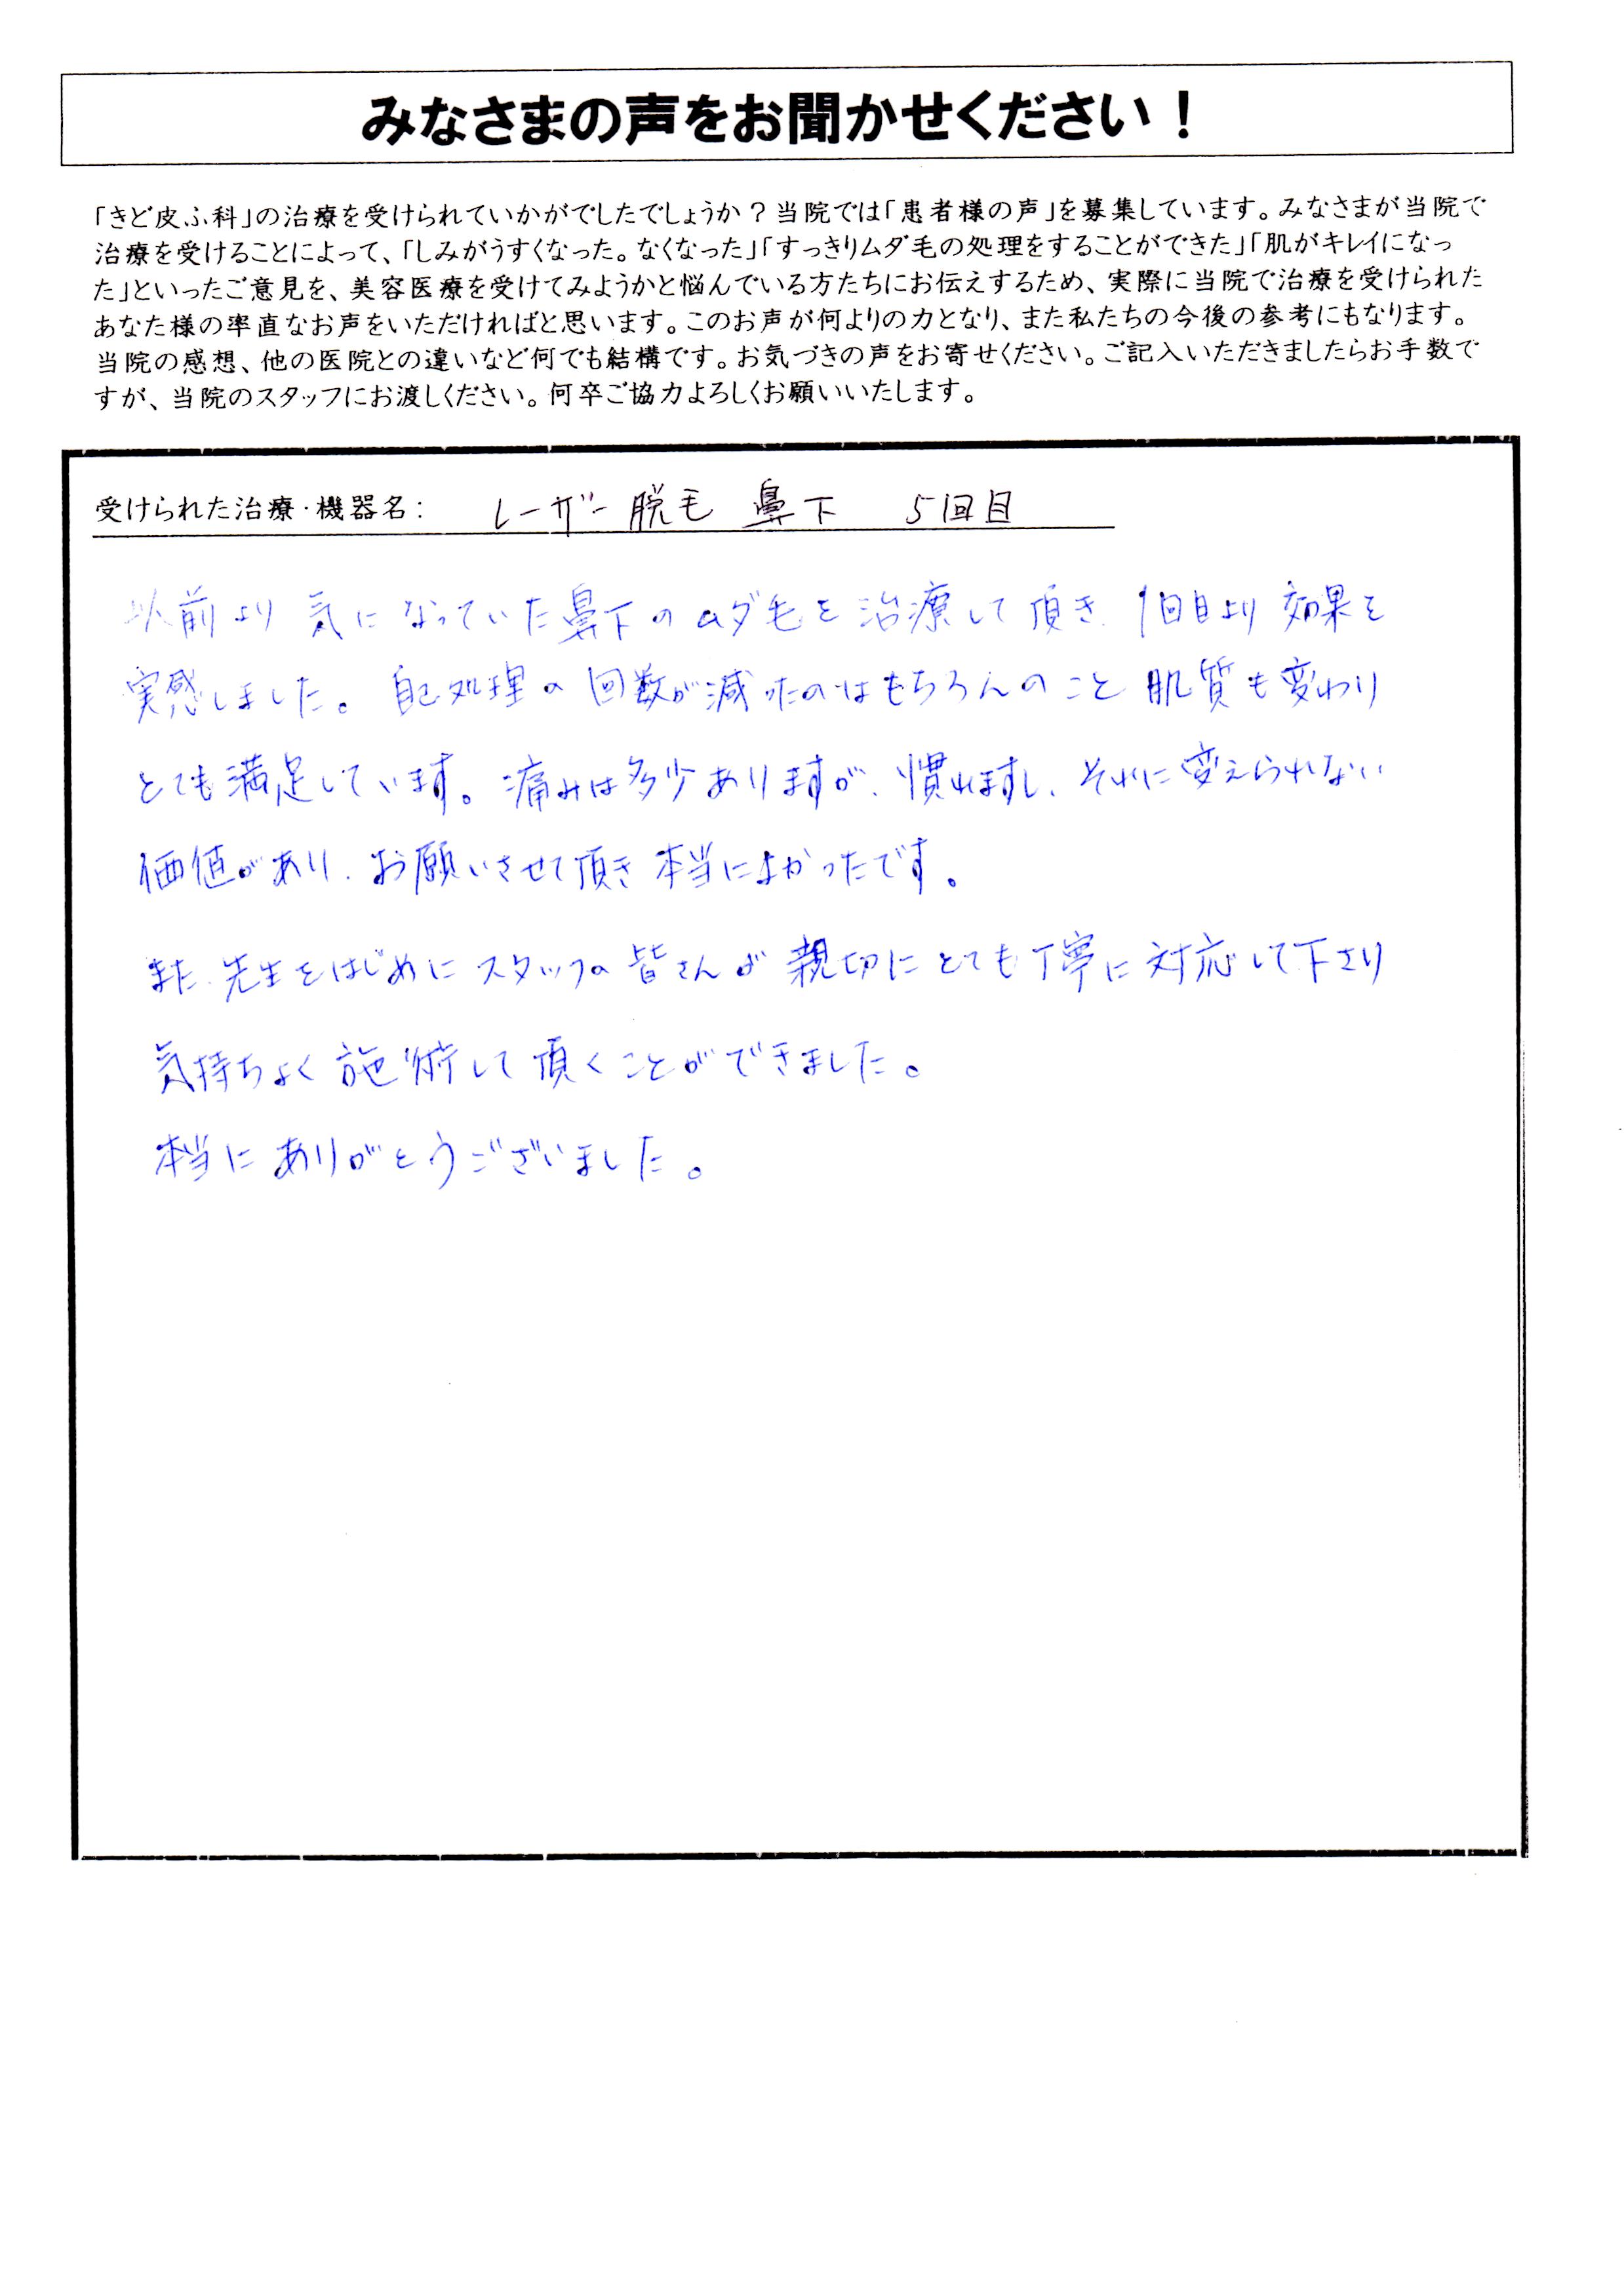 みなさまの声をお聞かせください！
「きど皮ふ科」の治療を受けられていかがでしたでしょうか？当院では「患者様の声」を募集しています。みなさまが当院で
治療を受けることによって、「しみがうすくなった。なくなった」「すっきりムダ毛の処理をすることができた」「肌がキレイになっ
た」といったご意見を、美容医療を受けてみようかと悩んでいる方たちにお伝えするため、実際に当院で治療を受けられた
あなた様の率直なお声をいただければと思います。このお声が何よりの力となり、また私たちの今後の参考にもなります。
当院の感想、他の医院との違いなど何でも結構です。お気づきの声をお寄せください。ご記入いただきましたらお手数で
すが、当院のスタッフにお渡しください。何卒ご協力よろしくお願いいたします。
受けられた治療・機器名： レーザー脱毛 鼻下 5回目
以前より気になっていた鼻下のムダ毛を治療して頂き、1回目より効果を
実感しました。自己処理の回数が減ったのはもちろんのこと肌質も変わり
とても満足しています。痛みは多少ありますが、慣れますし、それに変えられない
価値があり、お願いさせて頂き本当によかったです。
また、先生をはじめにスタッフの皆さんが親切にとても丁寧に対応して下さり
気持ちよく施術して頂くことができました。
本当にありがとうございました。